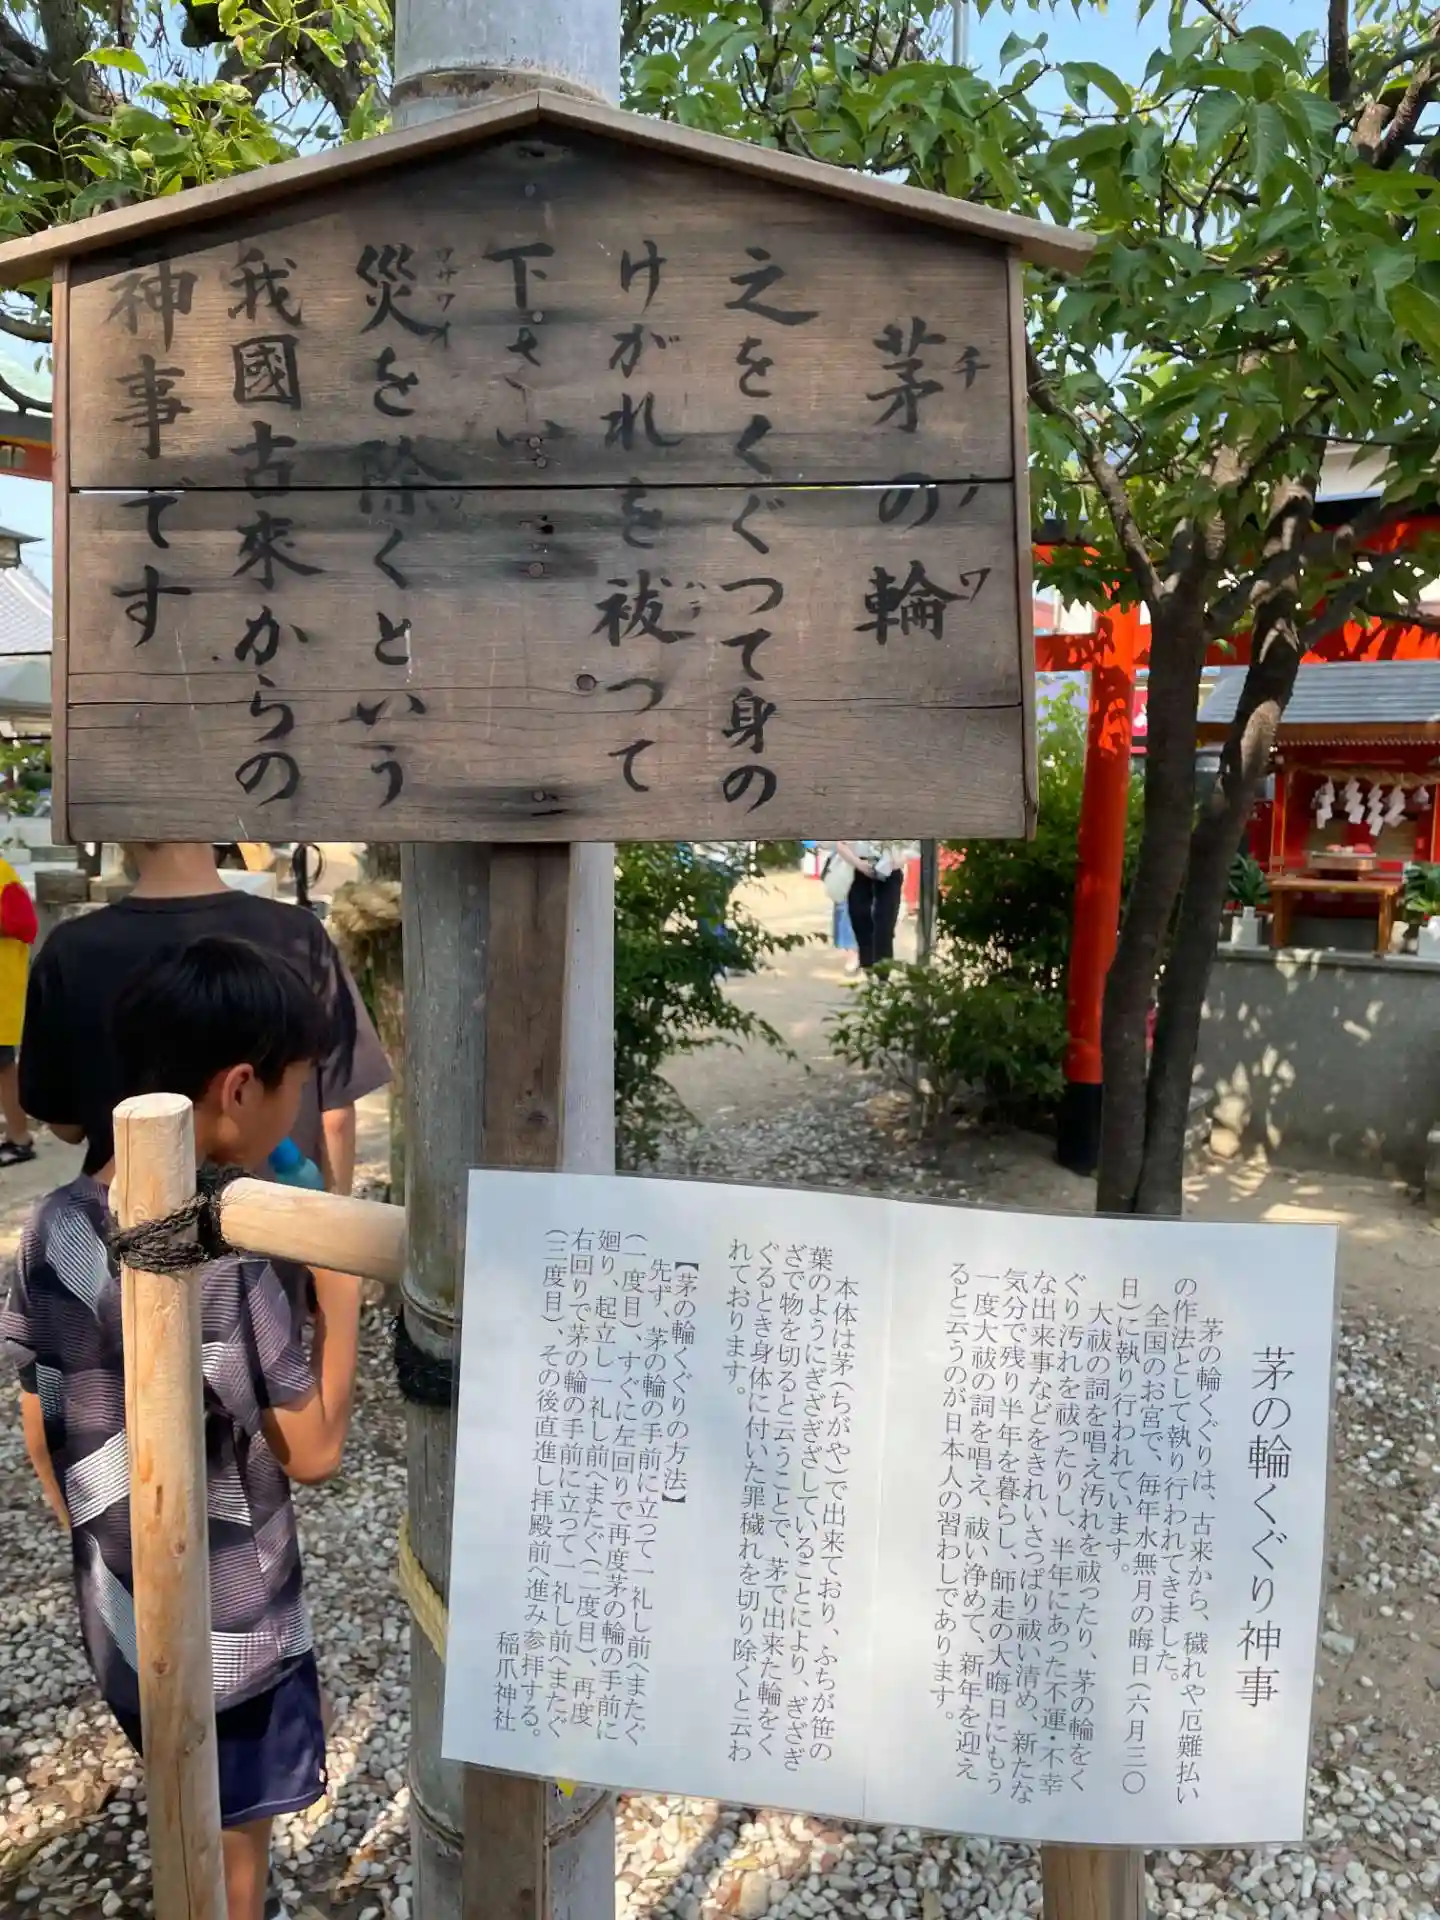 茅の輪
チノワ
之をくぐつて身の
けがれを祓つて
ハラ
下さい
災を除くという
ワザワイ
我國古來からの
神事です
茅の輪くぐり神事
茅の輪くぐりは、古来から、穢れや厄難払い
の作法として執り行われてきました。
全国のお宮で、毎年水無月の晦日(六月三〇
日)に執り行われています。
大祓の詞を唱え汚れを祓ったり、茅の輪をく
ぐり汚れを祓ったりし、半年にあった不運・不幸
な出来事などをきれいさっぱり祓い清め、新たな
気分で残り半年を暮らし、師走の大晦日にもう
一度大祓の詞を唱え、祓い浄めて、新年を迎え
ると云うのが日本人の習わしであります。
本体は茅(ちがや)で出来ており、ふちが笹の
葉のようにぎざぎざしていることにより、ぎざぎ
ざで物を切ると云うことで、茅で出来た輪をく
ぐるとき身体に付いた罪穢れを切り除くと云わ
れております。
【茅の輪くぐりの方法】
先ず、茅の輪の手前に立って一礼し前へまたぐ
(一度目)、すぐに左回りで再度茅の輪の手前に
廻り、起立し一礼し前へまたぐ(二度目)、再度
右回りで茅の輪の手前に立って一礼し前へまたぐ
(三度目)、その後直進し拝殿前へ進み参拝する。
稲爪神社